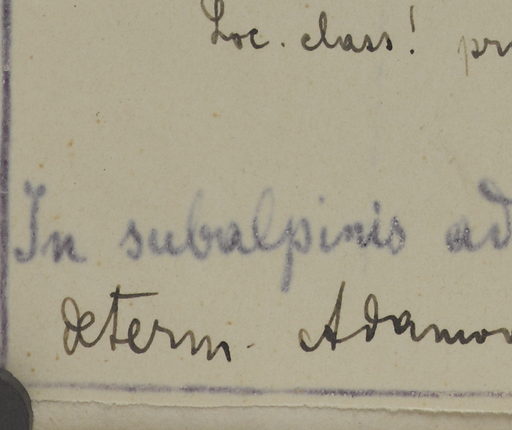 Loc. class! pr
In subalpinis ad
determ. Adamov